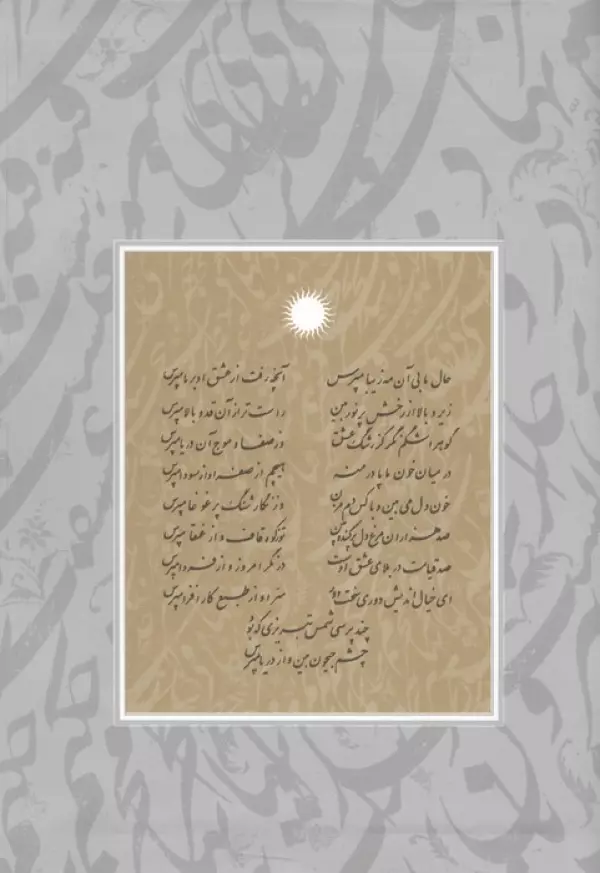 حال ما بی آن مه زیبا مپرس آنچه رفت از عشق او بر ما مپرس
زیر و بالا از رخش پر نور بین راست تر از آن قد و بالا مپرس
گوهر اشکم نگر کز رشک عشق وز صفا و موج آن دریا مپرس
در میان خون ما پا در منه هیچم از صفرا و از سودا مپرس
خون دل می بین و با کس دم مزن وز نگار شنگ پر غوغا مپرس
صد هزاران مرغ دل پرکنده بین تو ز کوه قاف و از عنقا مپرس
صد قیامت در بلای عشق اوست در نگر امروز و از فردا مپرس
ای خیال اندیش دوری سخت دور سر او از طبع کار افزا مپرس
چند پرسی شمس تبریزی که بود
چشم جیحون بین و از دریا مپرس